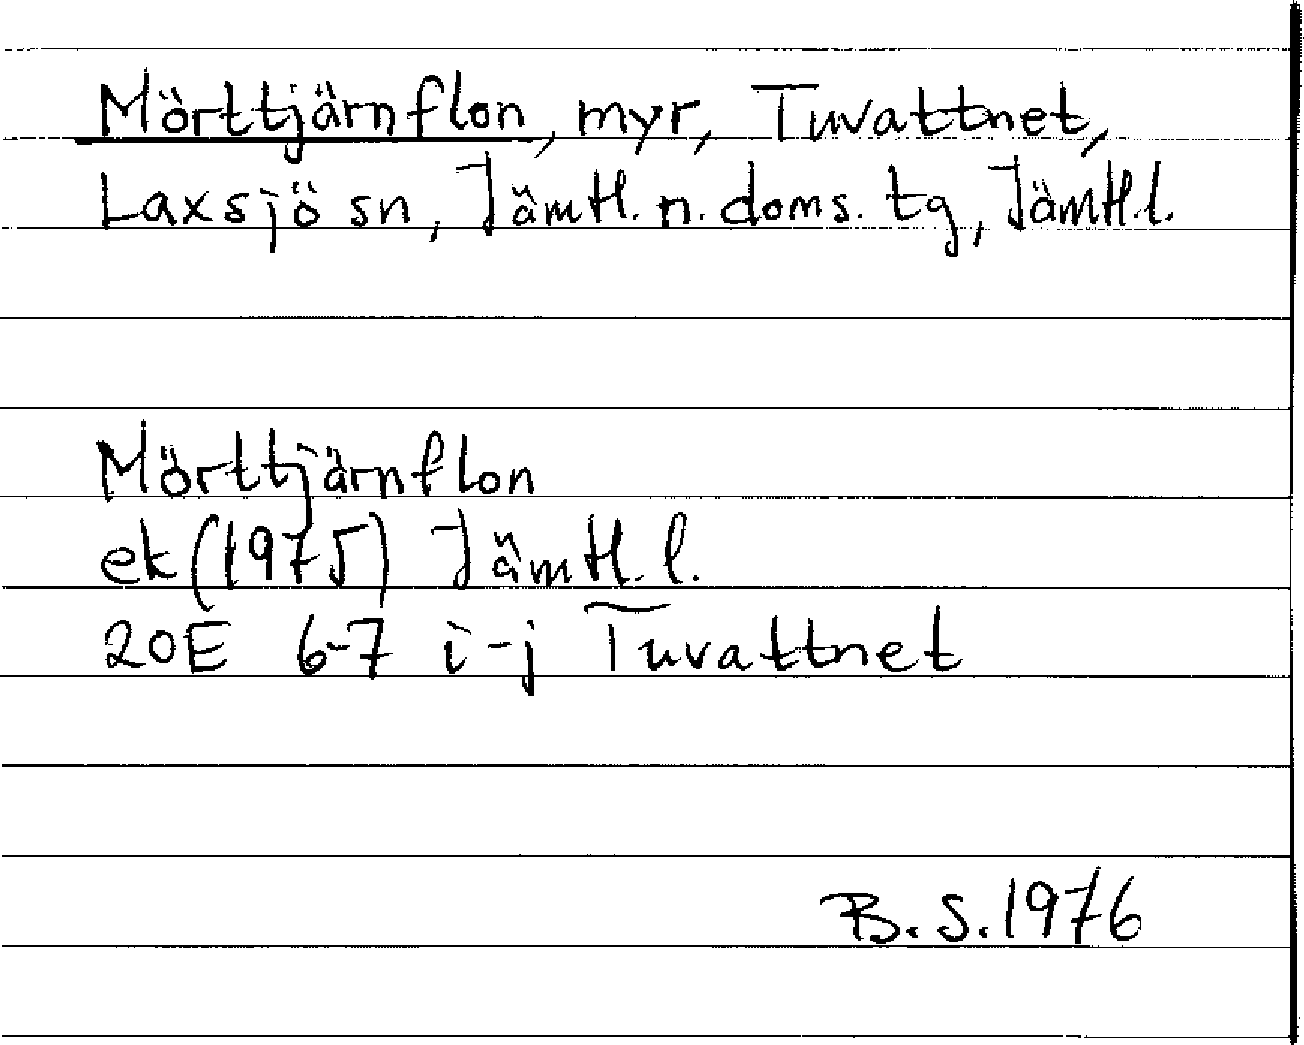 Mörttjärnflon, myr, Tuvattnet,
Laxsjö sn, Jämtl. n. doms. tg, Jämtl.l.
Mörttjärnflon
ek (1975) Jämtl.l.
20E 6-7 i-j Tuvattnet
B.S. 1976